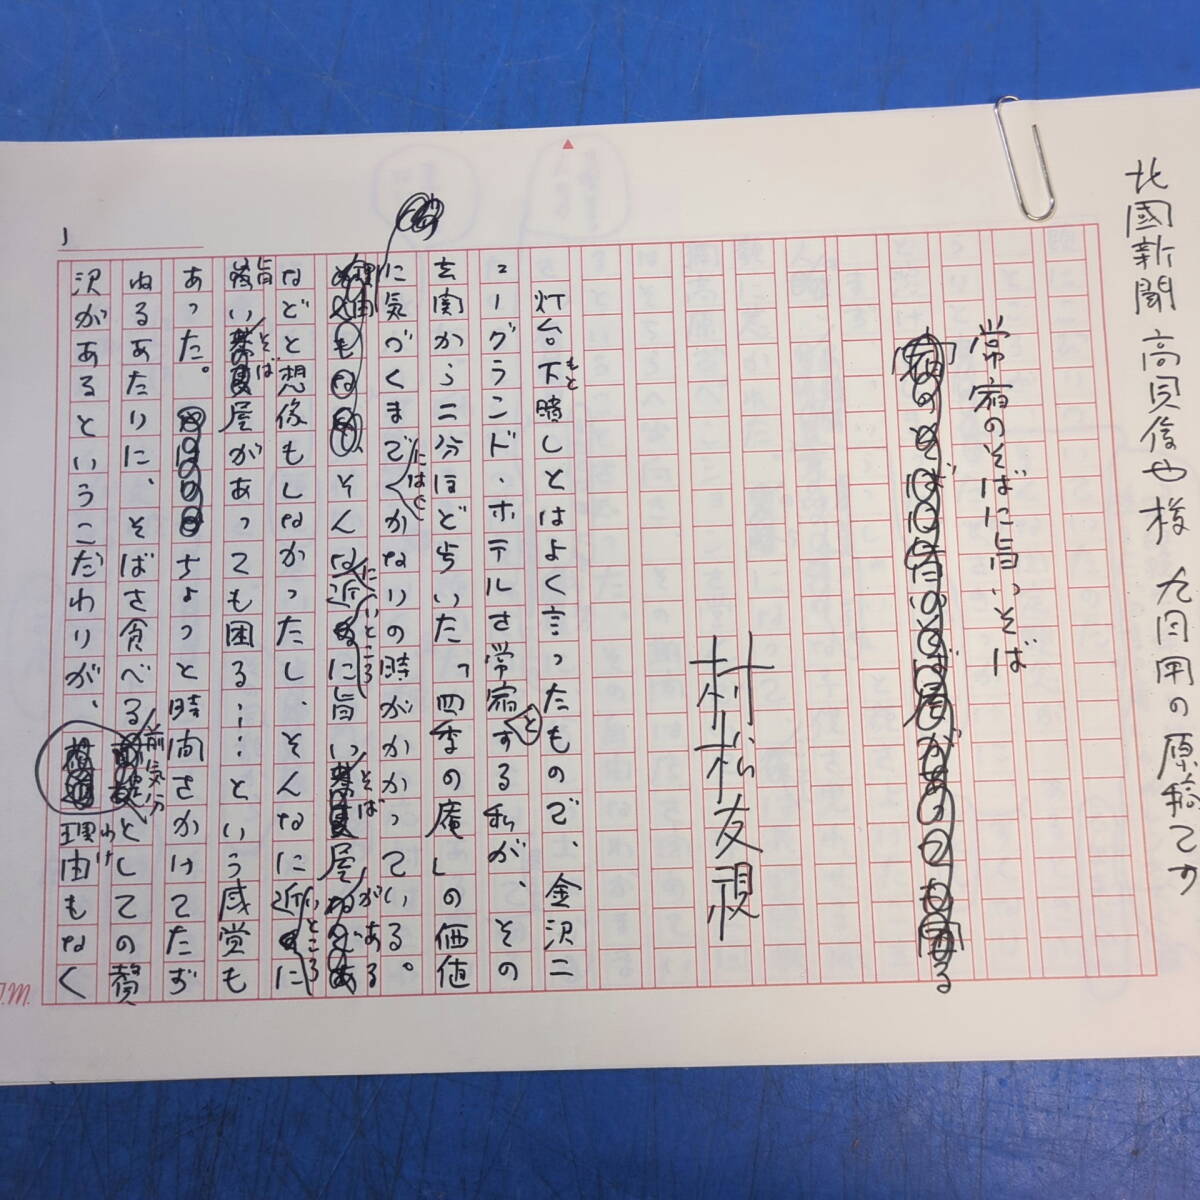 北國新聞 高貝俊也様 九月用の原稿です
常宿のそばに旨いそば
村松友視
灯台下暗しとはよく言ったもので、金沢ニ
もと
ューグランド・ホテルを常宿とする私が、その
玄関から二分ほど歩いた「四季の庵」の価値
に気づくまでにはと、かなりの時がかかっている。
そんな近いところに旨いそば屋がある
などと想像もしなかったし、そんなに近いところに
旨いそば屋があっても困る……という感覚も
あった。ちょっと時間をかけてたず
ねるあたりに、そばを食べる前気分としての贅
沢があるというこだわりが、理由もなく
わけ
1
T.M.